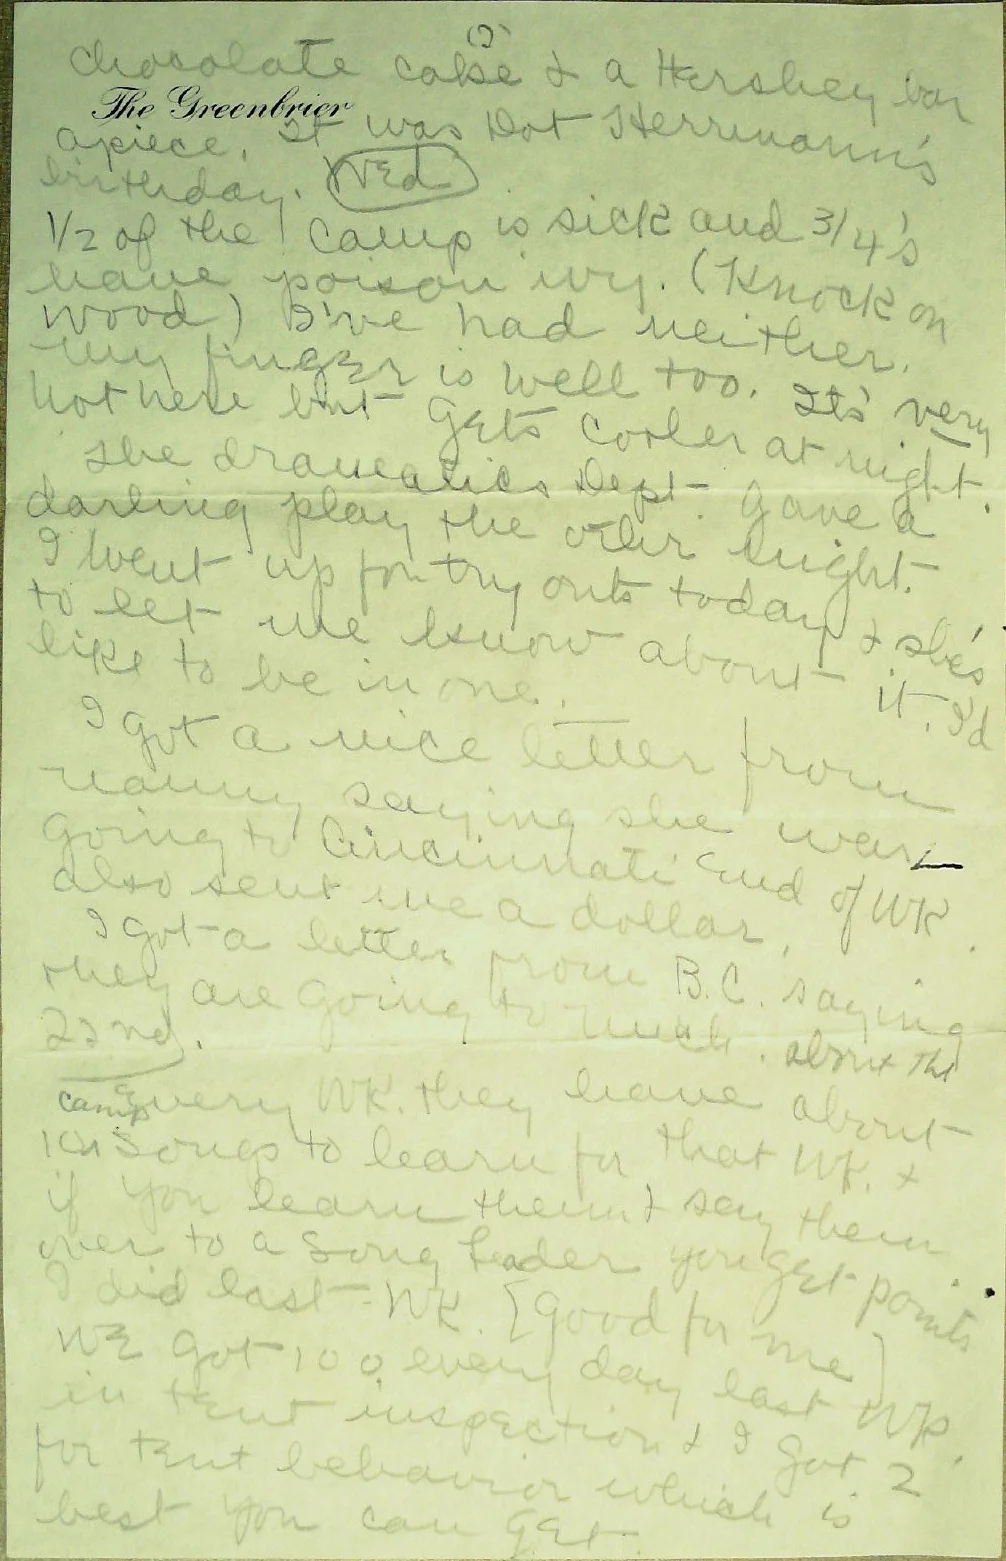 (2)
chocolate cake & a Hershey bar
The Greenbrier
apiece. It was Dot Herrmann's
birthday. Wed
1/2 of the camp is sick and 3/4's
have poison ivy. (Knock on
wood) I've had neither.
My finger is well too. Its' very
hot here but gets cooler at night.
The dramatics Dept. gave a
darling play the other night.
I went up for try outs today & she's
to let me know about it. I'd
like to be in one.
I got a nice letter from
nanny saying she was
going to Cincinnati end of WK.
also sent me a dollar.
I got a letter from B.C. saying
they are going to Mich. about the
22nd.
Every WK. they have about
camp
10 songs to learn for that WK. &
if you learn them & say them
over to a song leader you get points
I did last WK. [good for me]
WE got 100 every day last WK.
in tent inspection & I got 2
for tent behavior which is
best you can get.